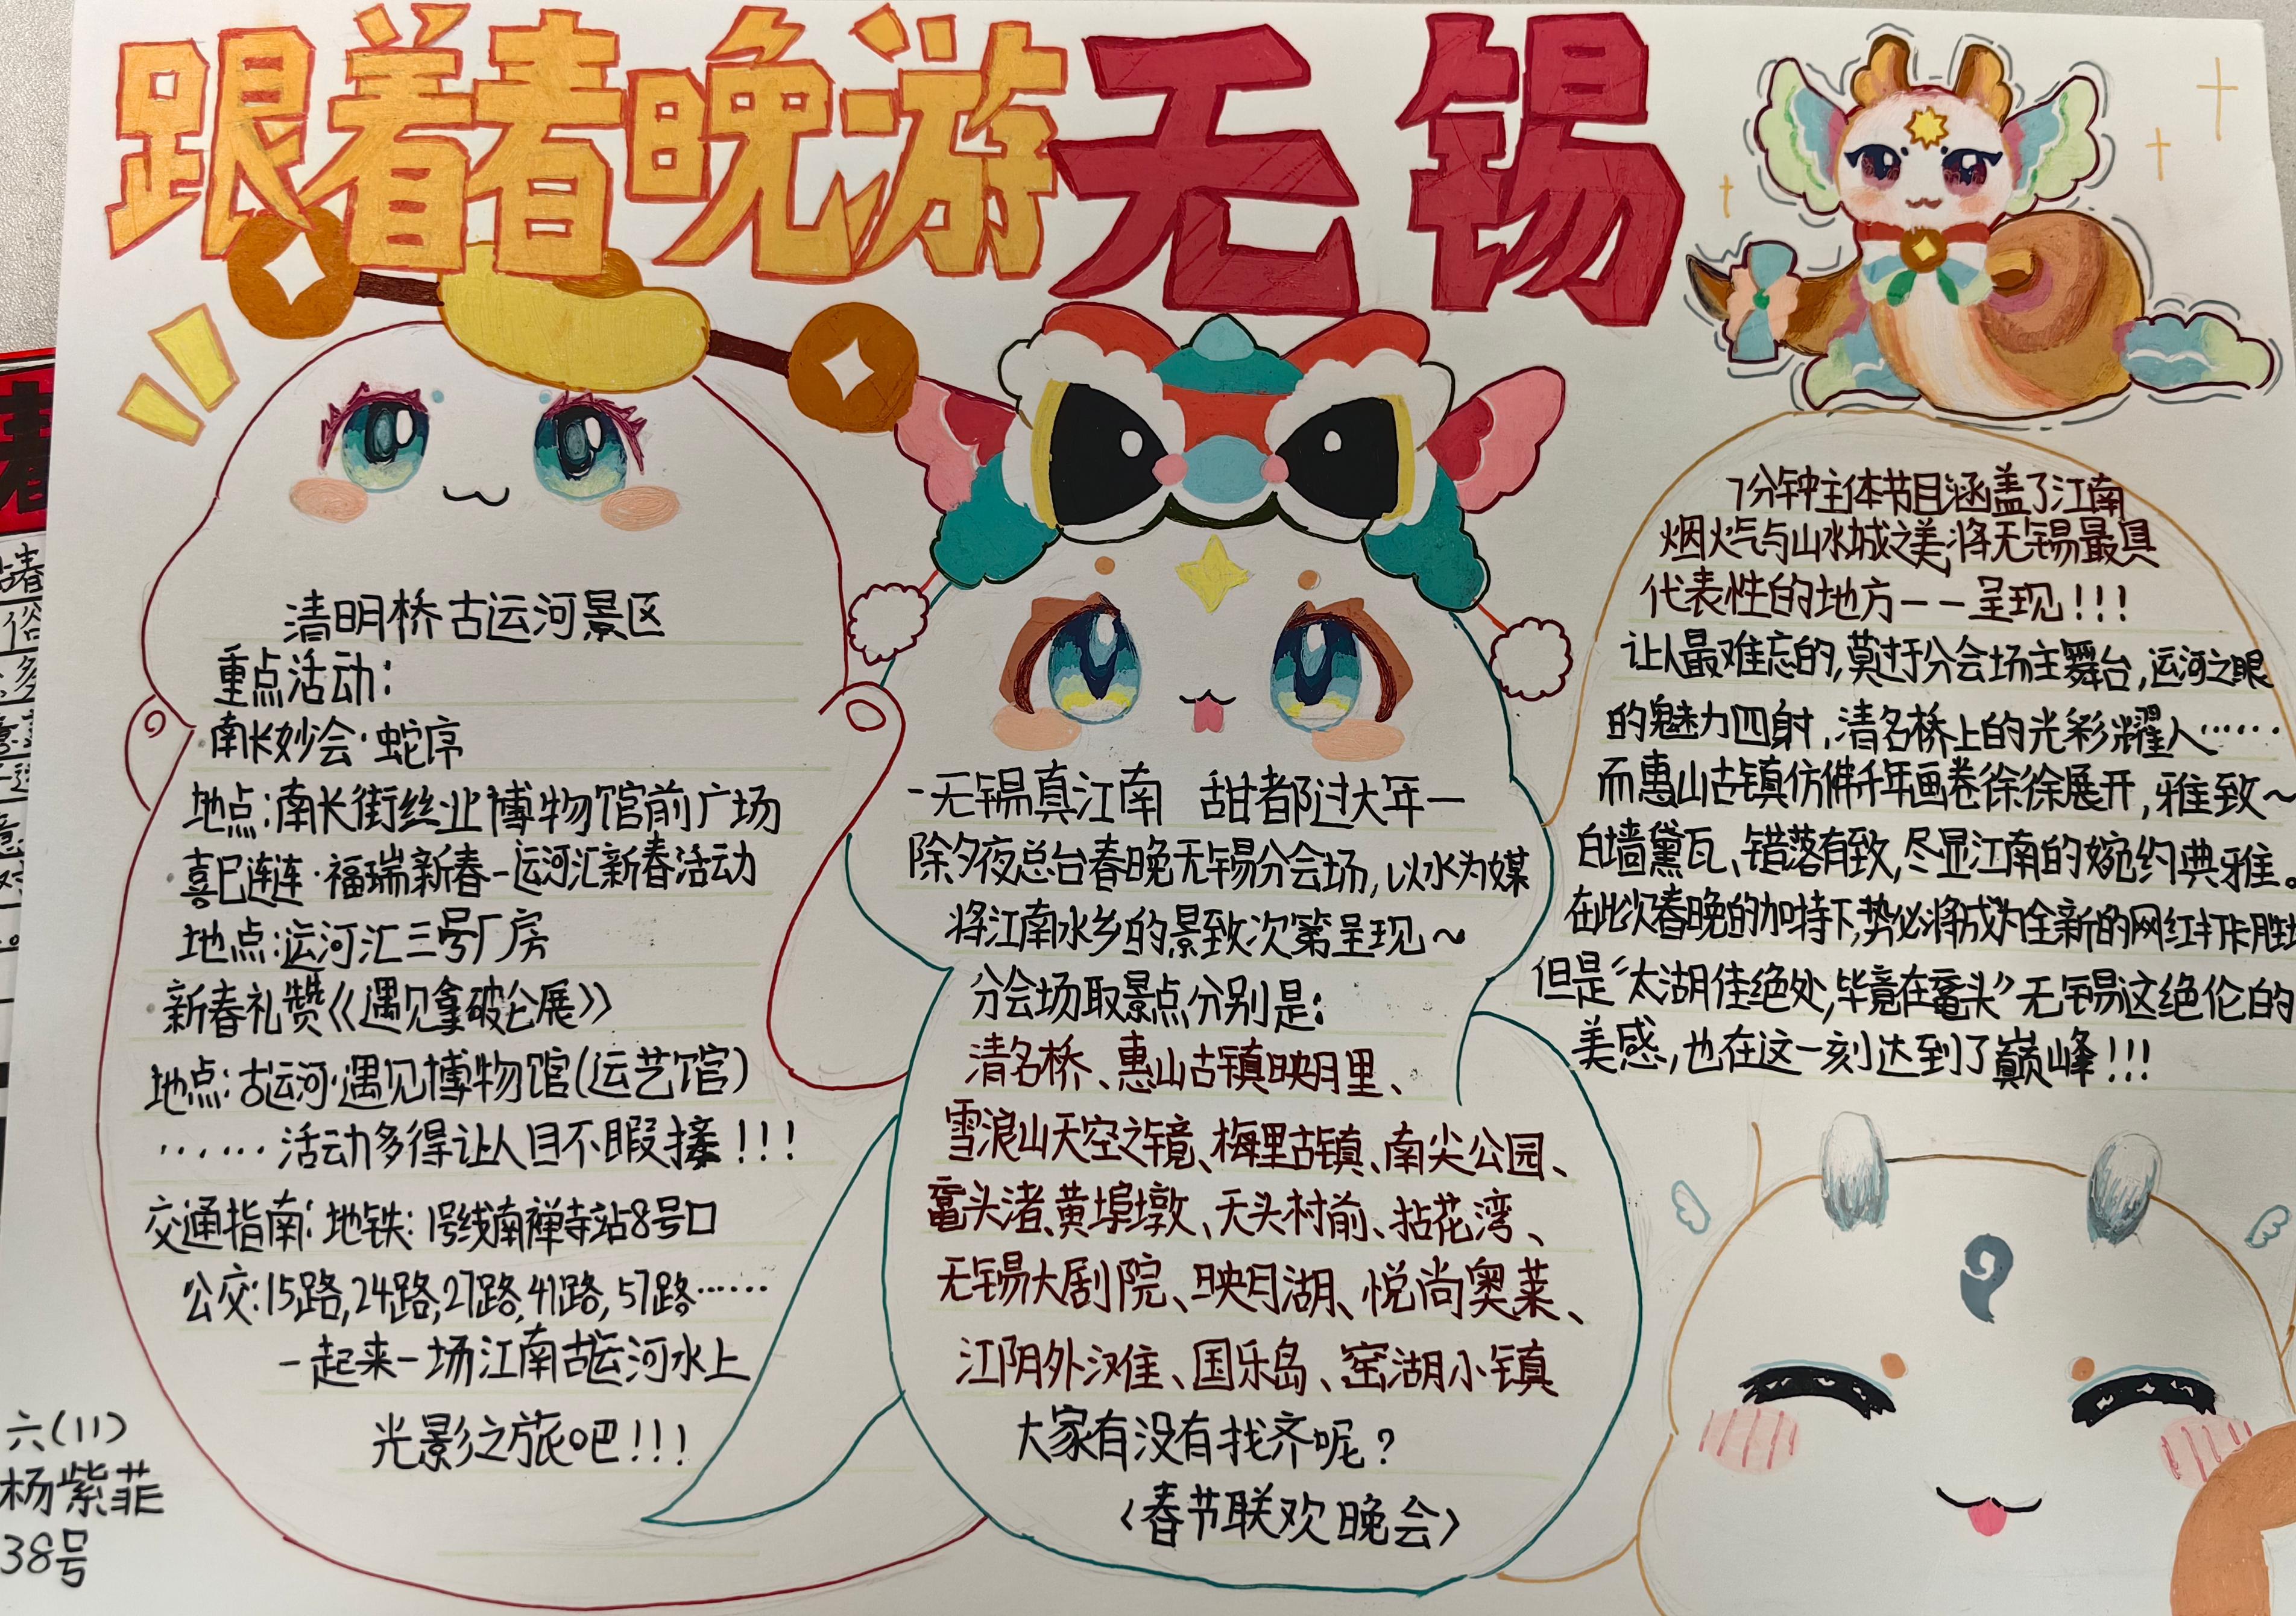 跟着春晚游无锡
清明桥古运河景区
重点活动:
·南长妙会·蛇序
地点:南长街丝业博物馆前广场
·喜巳连连·福瑞新春-运河汇新春活动
地点:运河汇三号厂房
·新春礼赞《遇见拿破仑展》
地点:古运河·遇见博物馆(运艺馆)
……活动多得让人目不暇接!!!
交通指南:地铁:1号线南禅寺站8号口
公交:15路,24路,27路,41路,57路……
一起来一场江南古运河水上
光影之旅吧!!!
六(11)
杨紫菲
38号
-无锡真江南 甜都过大年-
除夕夜总台春晚无锡分会场,以水为媒
将江南水乡的景致次第呈现~
分会场取景点分别是:
清名桥、惠山古镇映月里、
雪浪山天空之镜、梅里古镇、南尖公园、
鼋头渚、黄埠墩、天头村前、拈花湾、
无锡大剧院、映月湖、悦尚奥莱、
江阴外滩、国乐岛、窑湖小镇
大家有没有找齐呢?
〈春节联欢晚会〉
7分钟主体节目涵盖了江南
烟火气与山水城之美,将无锡最具
代表性的地方一一呈现!!!
让人最难忘的,莫过于分会场主舞台,运河之眼
的魅力四射,清名桥上的光彩耀人……
而惠山古镇仿佛千年画卷徐徐展开,雅致~
白墙黛瓦、错落有致,尽显江南的婉约典雅。
在此次春晚的加持下,势必将成为全新的网红打卡胜地
但是“太湖佳绝处,毕竟在鼋头”无锡这绝伦的
美感,也在这一刻达到了巅峰!!!